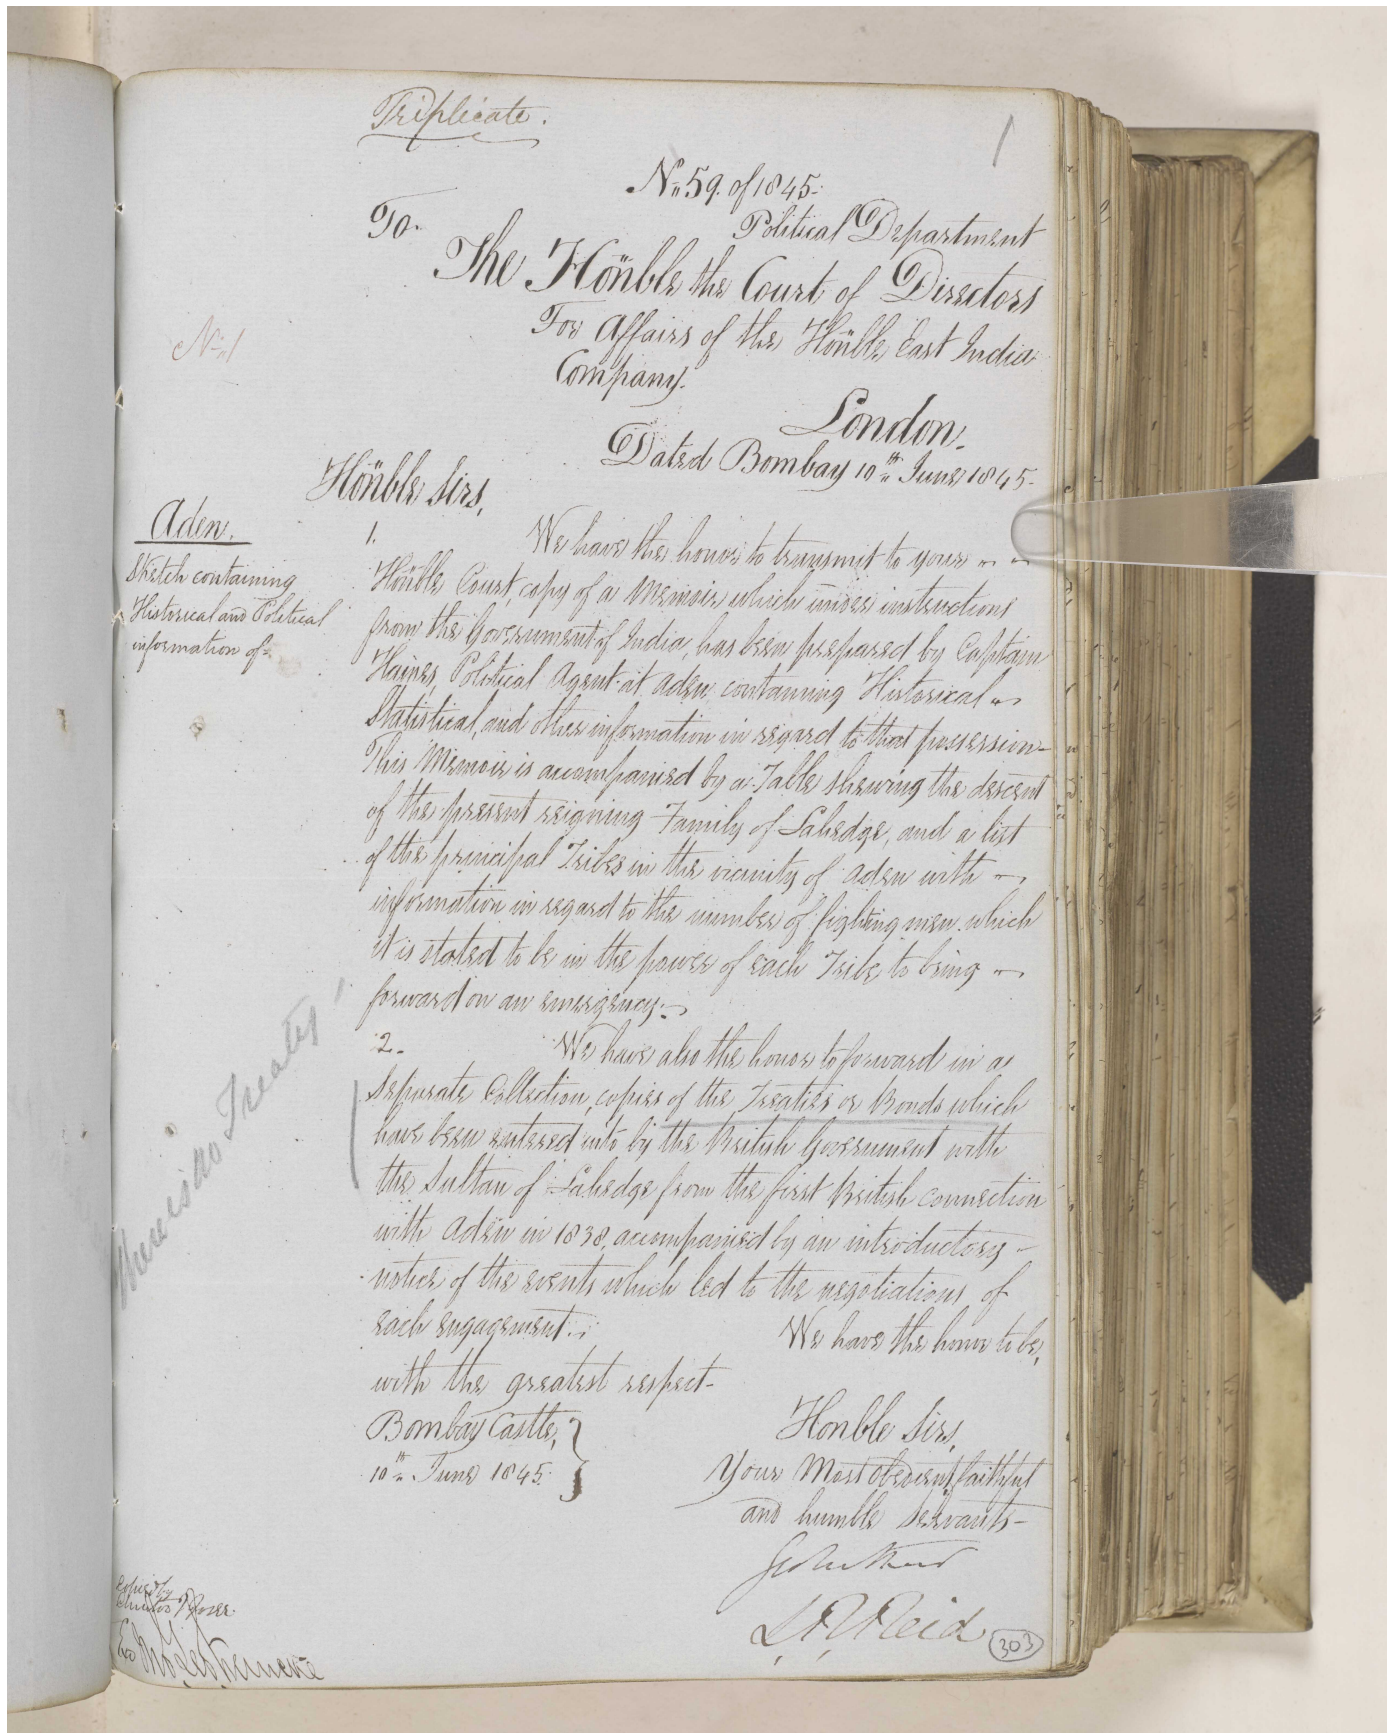 Triplicate.
1
No 59. of 1845.
To.
Political Department
The Honble the Court of Directors
For Affairs of the Honble East India
Company.
No 1
London.
Dated Bombay 10th June 1845.
Honble Sirs,
Aden.
Sketch containing
Historical and Political
information of
1. We have the honor to transmit to your
Honble Court, copy of a Memoir which under instructions
from the Government of India, has been prepared by Captain
Haines, Political Agent at Aden containing Historical
Statistical, and other information in regard to that possession
This Memoir is accompanied by a Table shewing the descent
of the present reigning Family of Lahedge, and a list
of the principal Tribes in the vicinity of Aden with
information in regard to the number of fighting men which
it is stated to be in the power of each Tribe to bring
forward on an emergency.
2. We have also the honor to forward in a
Separate Collection, copies of the Treaties or Bonds which
have been entered into by the British Government with
the Sultan of Lahedge from the first British connection
with Aden in 1838, accompanied by an introductory
notice of the events which led to the negotiations of
each engagement.
There is no Treaty!
We have the honor to be,
with the greatest respect
Bombay Castle,
10th June 1845.
Honble Sirs,
Your Most obedient, faithful
and humble Servants
L R Reid
303
Copied by